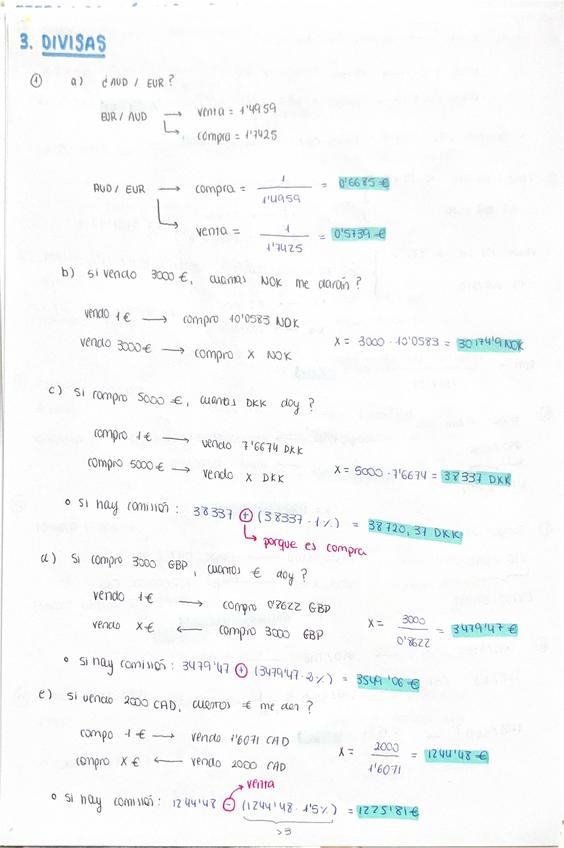 3. DIVISAS
① a) ¿AUD / EUR?
EUR / AUD → venta = 1'4959
↳ compra = 1'7425
AUD / EUR → compra = 1 / 1'4959 = 0'6685 €
↳ venta = 1 / 1'7425 = 0'5739 €
b) si vendo 3000 €, cuantas NOK me darán?
vendo 1 € → compro 10'0583 NOK
vendo 3000 € → compro X NOK X = 3000 · 10'0583 = 30174'9 NOK
c) Si compro 5000 €, cuantos DKK doy?
compro 1 € → vendo 7'6674 DKK
compro 5000 € → vendo X DKK X = 5000 · 7'6674 = 38337 DKK
o si hay comisión: 38337 + (38337 · 1%) = 38720,37 DKK
↳ porque es compra
d) Si compro 3000 GBP, cuantos € doy?
vendo 1 € → compro 0'8622 GBP
vendo X € ← compro 3000 GBP X = 3000 / 0'8622 = 3479'47 €
o si hay comisión: 3479'47 + (3479'47 · 2%) = 3549'06 €
e) Si vendo 2000 CAD, cuantos € me dan?
compo 1 € → vendo 1'6071 CAD
compro X € ← vendo 2000 CAD X = 2000 / 1'6071 = 1244'48 €
→ venta
o si hay comisión: 1244'48 - (1244'48 · 1'5%) = 1225'81 €
>5